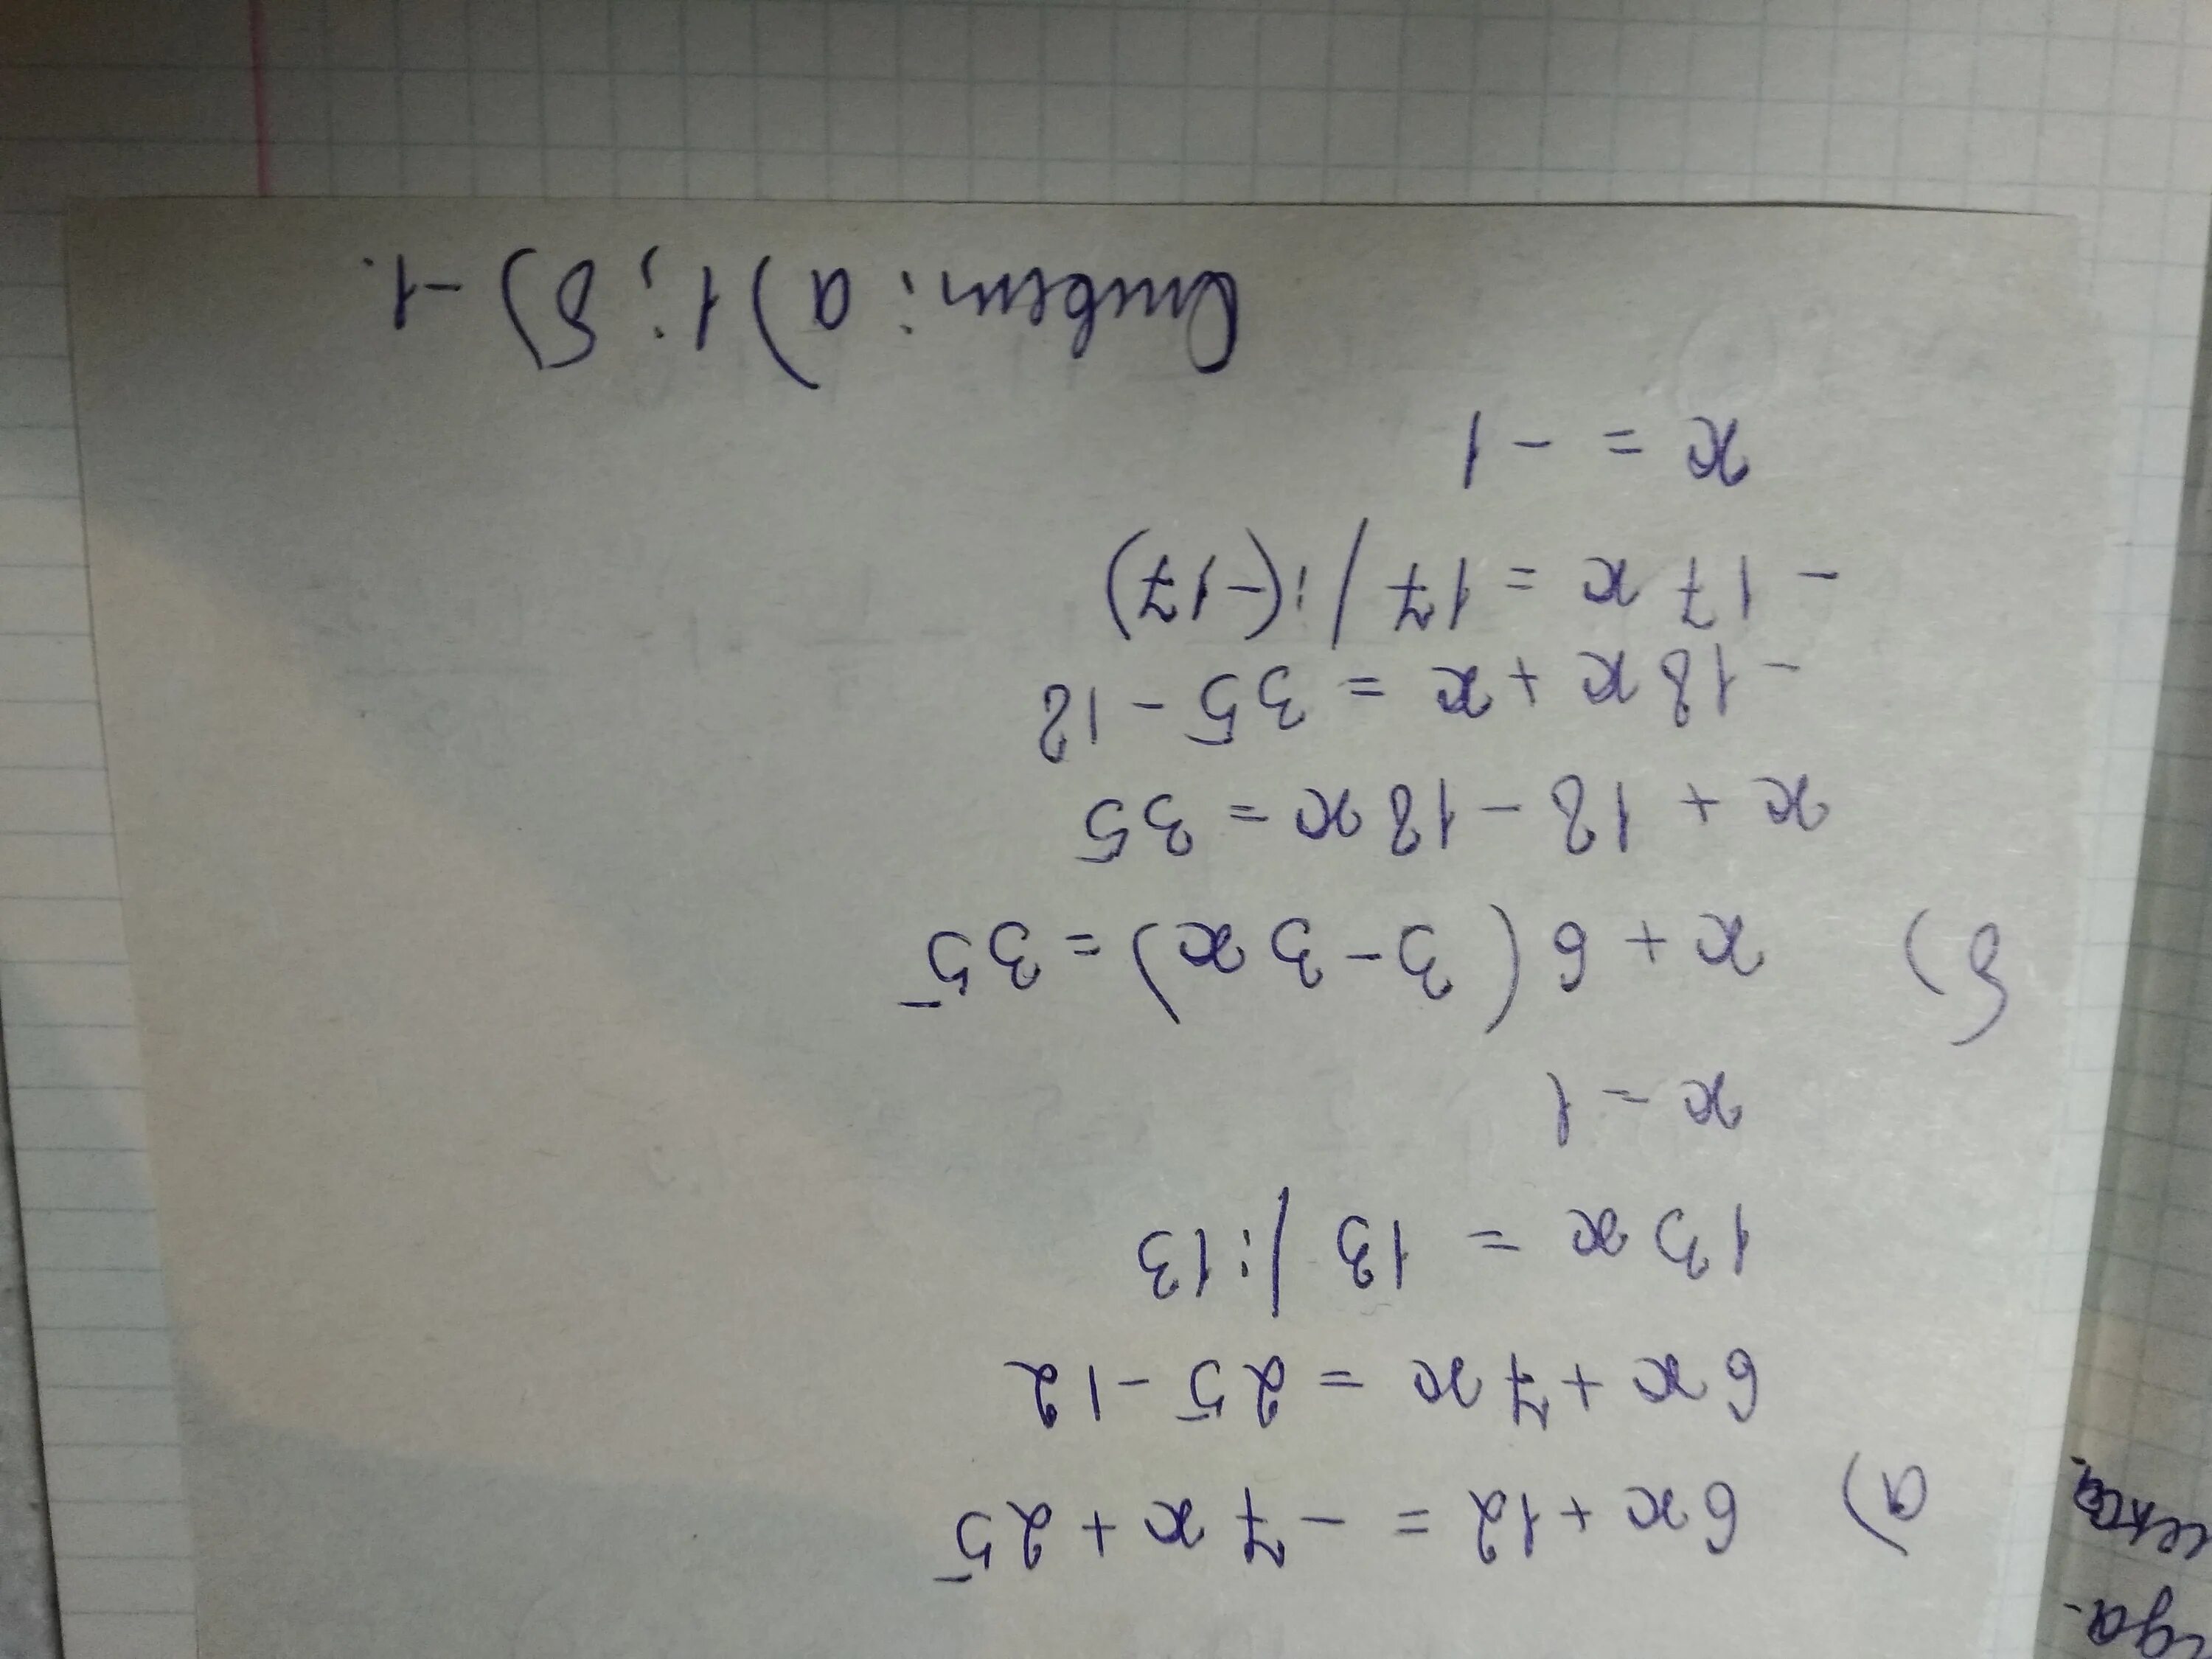 а) 6x + 12 = - 7x + 25
6x + 7x = 25 - 12
13x = 13 /:13
x = 1
б) x + 6 (3 - 3x) = 35
x + 18 - 18x = 35
- 18x + x = 35 - 18
- 17x = 17 /:(-17)
x = - 1
Ответ: а) 1; б) -1.